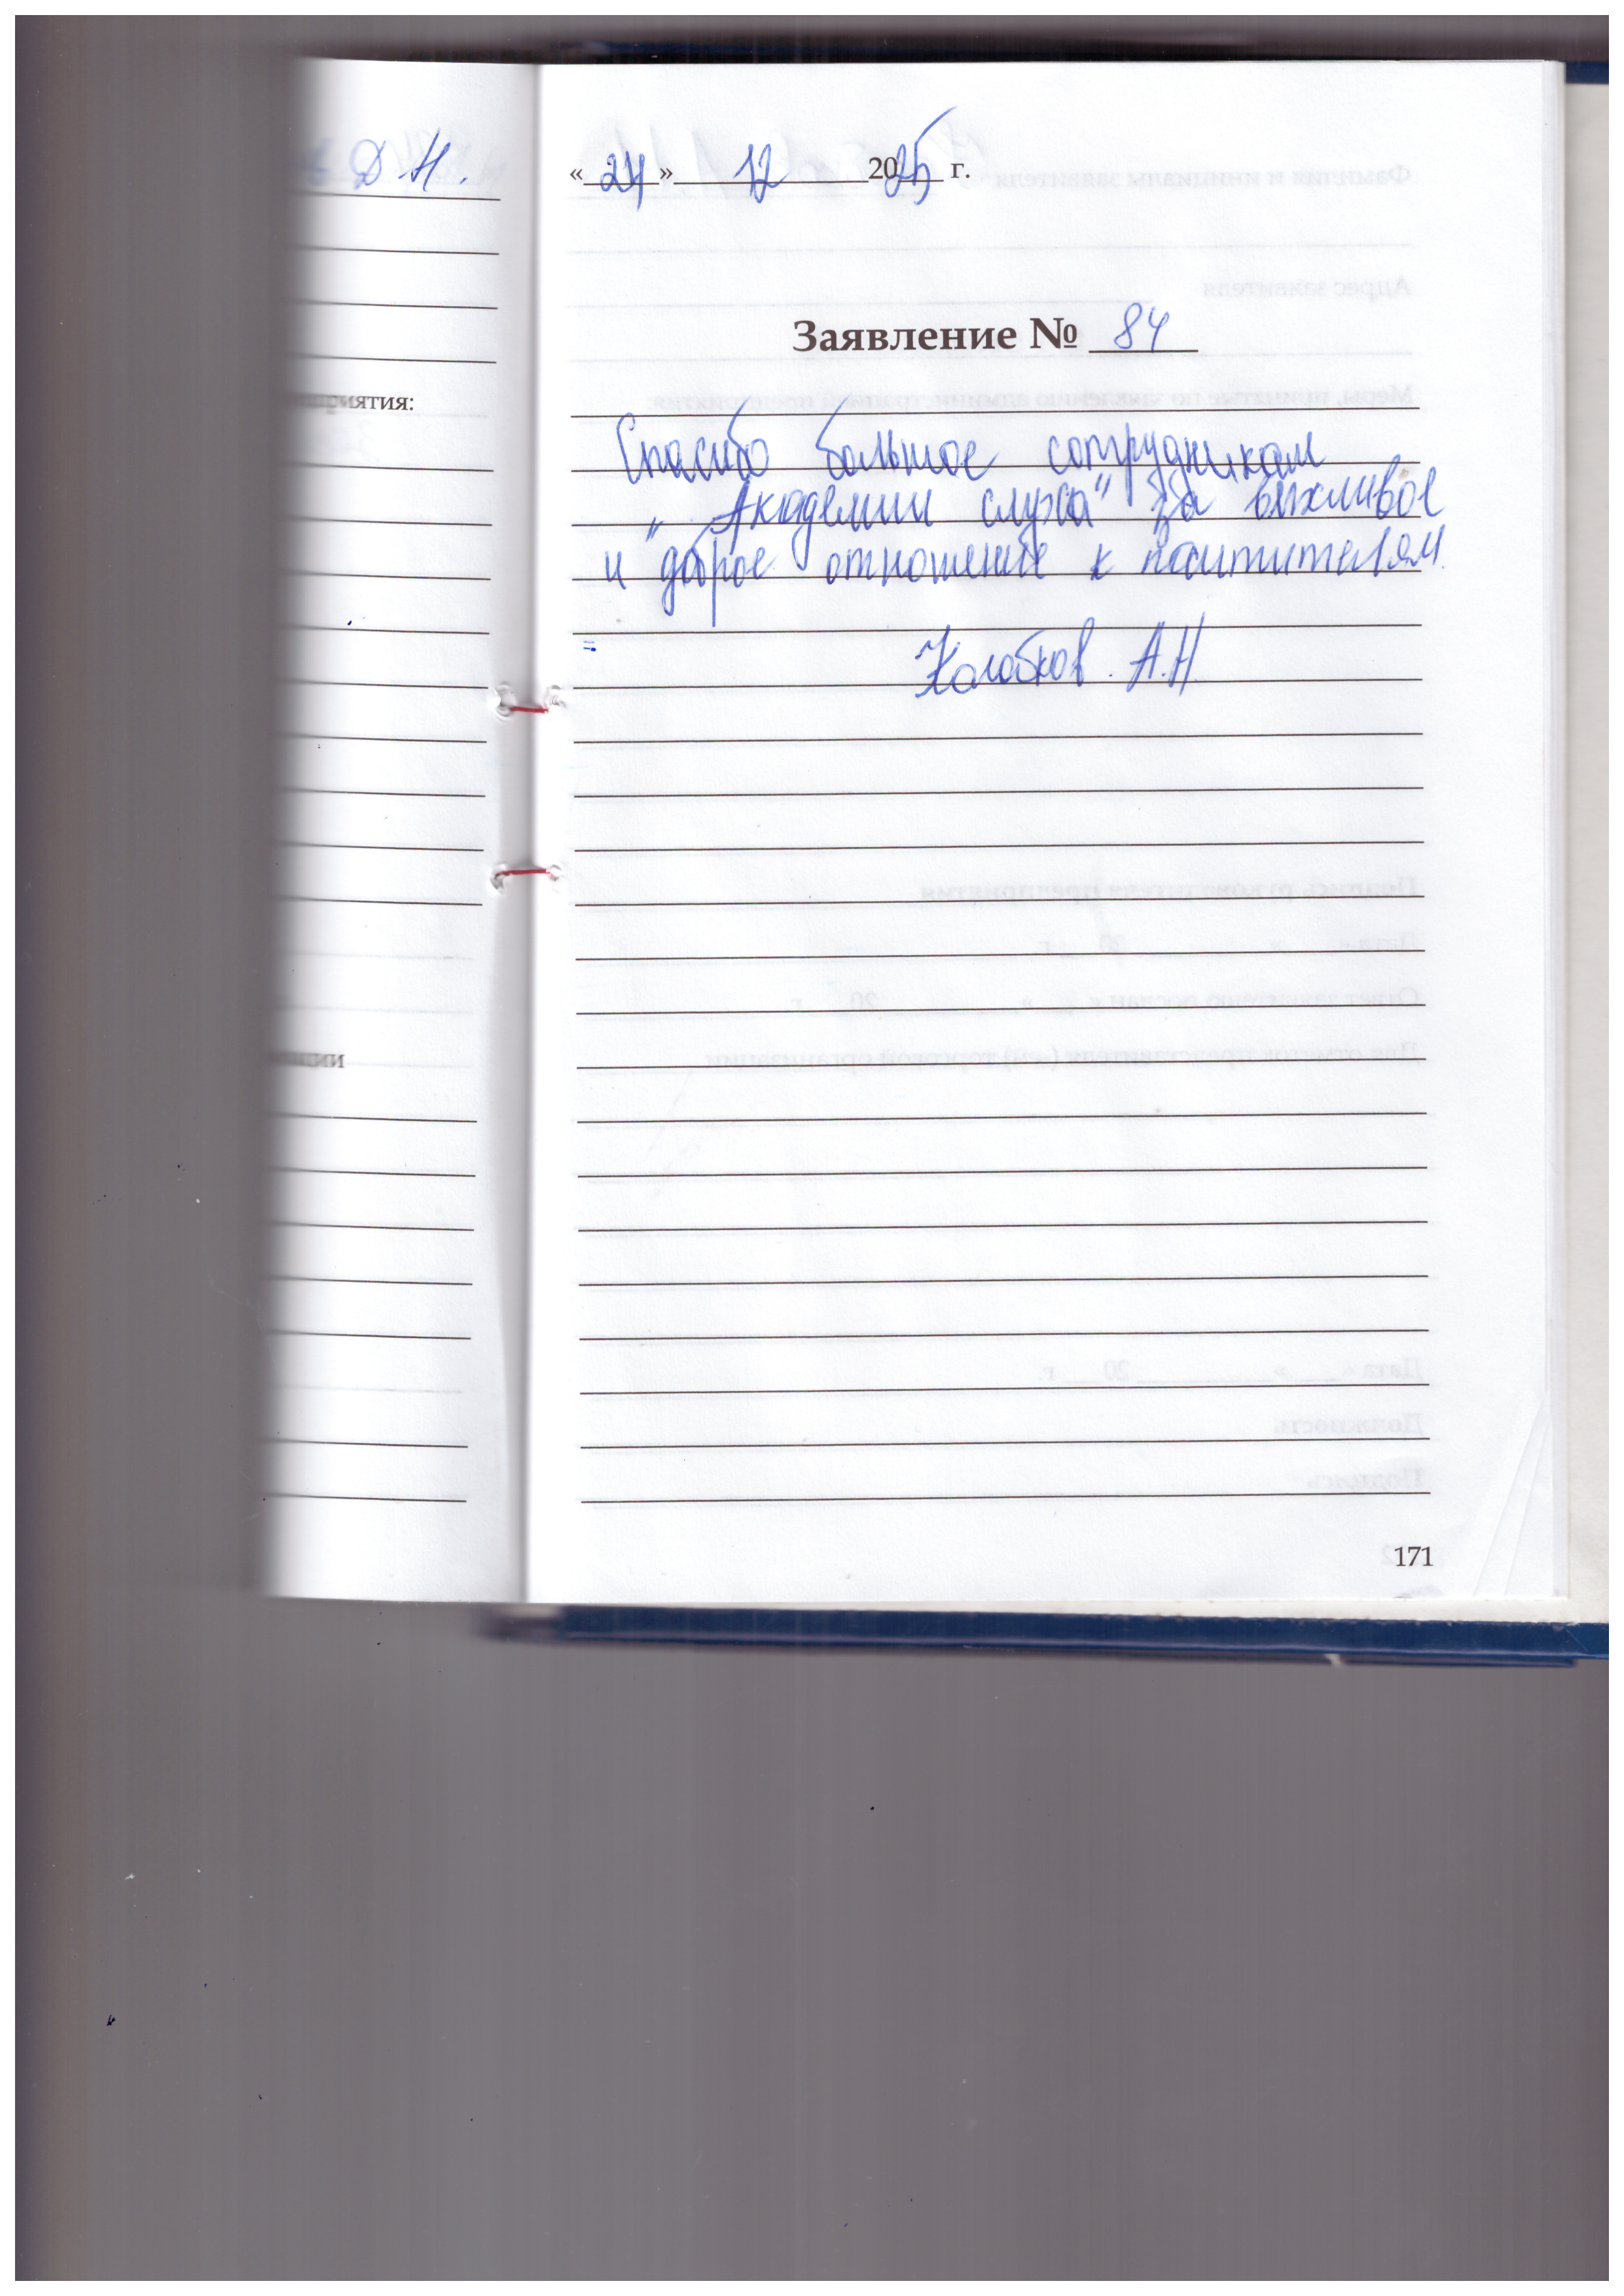 Д Н.
приятия:
«24» 12 2025 г.
Заявление № 84
Спасибо большое сотрудникам
„Академии слуха" за вежливое
и доброе отношение к посетителям.
Колобков А.Н
171